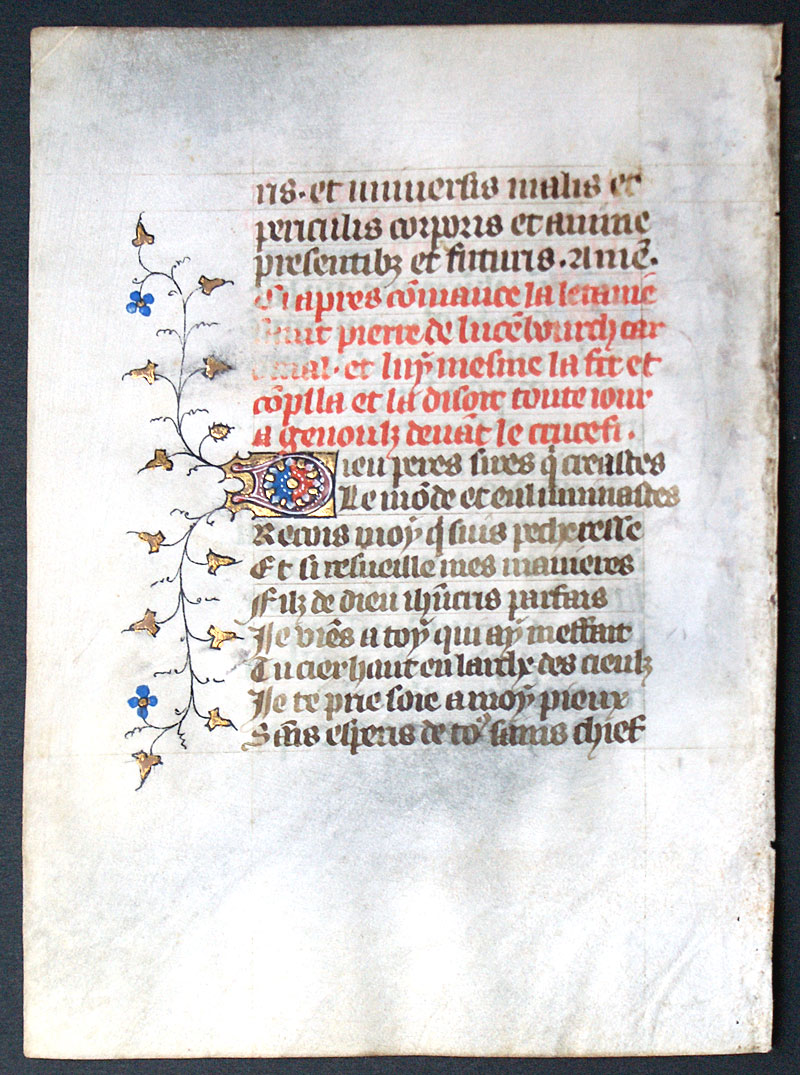 ris. et universis malis et
periculis corporis et anime
presentibꝫ et futuris. Amē.
Ci apres cōmance la letanie
saint pierre de lucēbourch car
dinal. et luy mesme la fit et
cōpila et la disoit toute iour
a genoulꝫ devāt le crucefi.
Dieu peres sires q̄ creastes
Le mōde et enluminastes
Recois moy q̄ suis pecheresse
Et si resueille mes manieres
Filꝫ de dieu ihūcris parfais
Je viēs a toy qui ay meffait
Tu cier haut en larche des cieulꝫ
Je te prie soie a moy pieux
Sāis esperis de toꝰ sains chief